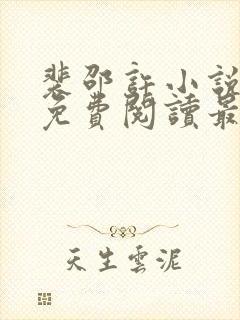 裴邵許小說
免費閱讀最
天生雲泥